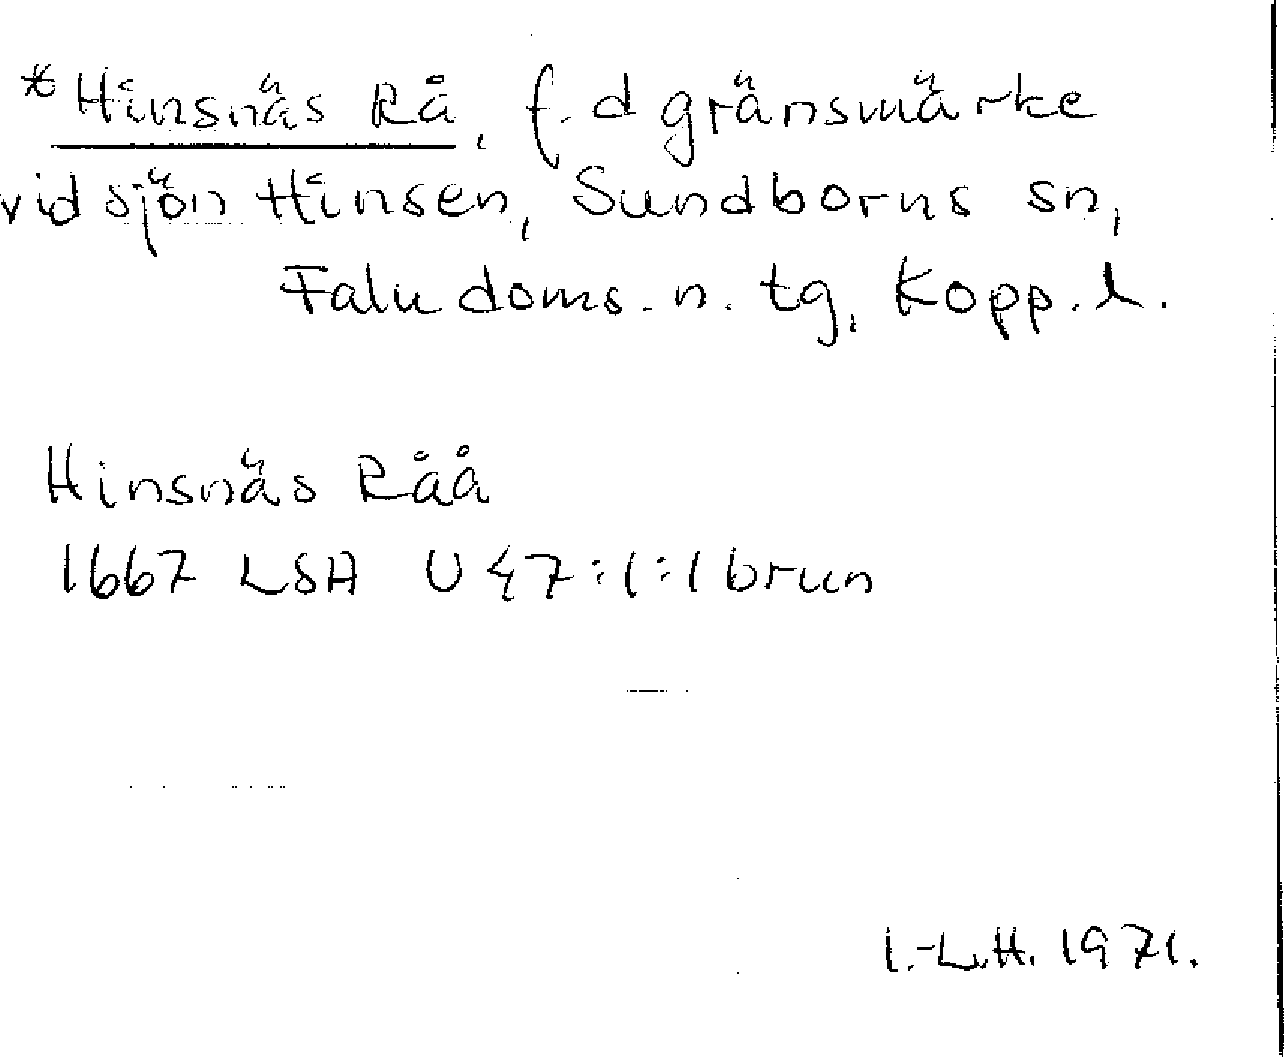 *Hinsnäs Rå, f.d gränsmärke
vid sjön Hinsen, Sundborns sn,
Falu doms. n. tg, Kopp. l.
Hinsnäs Råå
1667 LSA U 47:1:1 brun
I.-L.H. 1971.